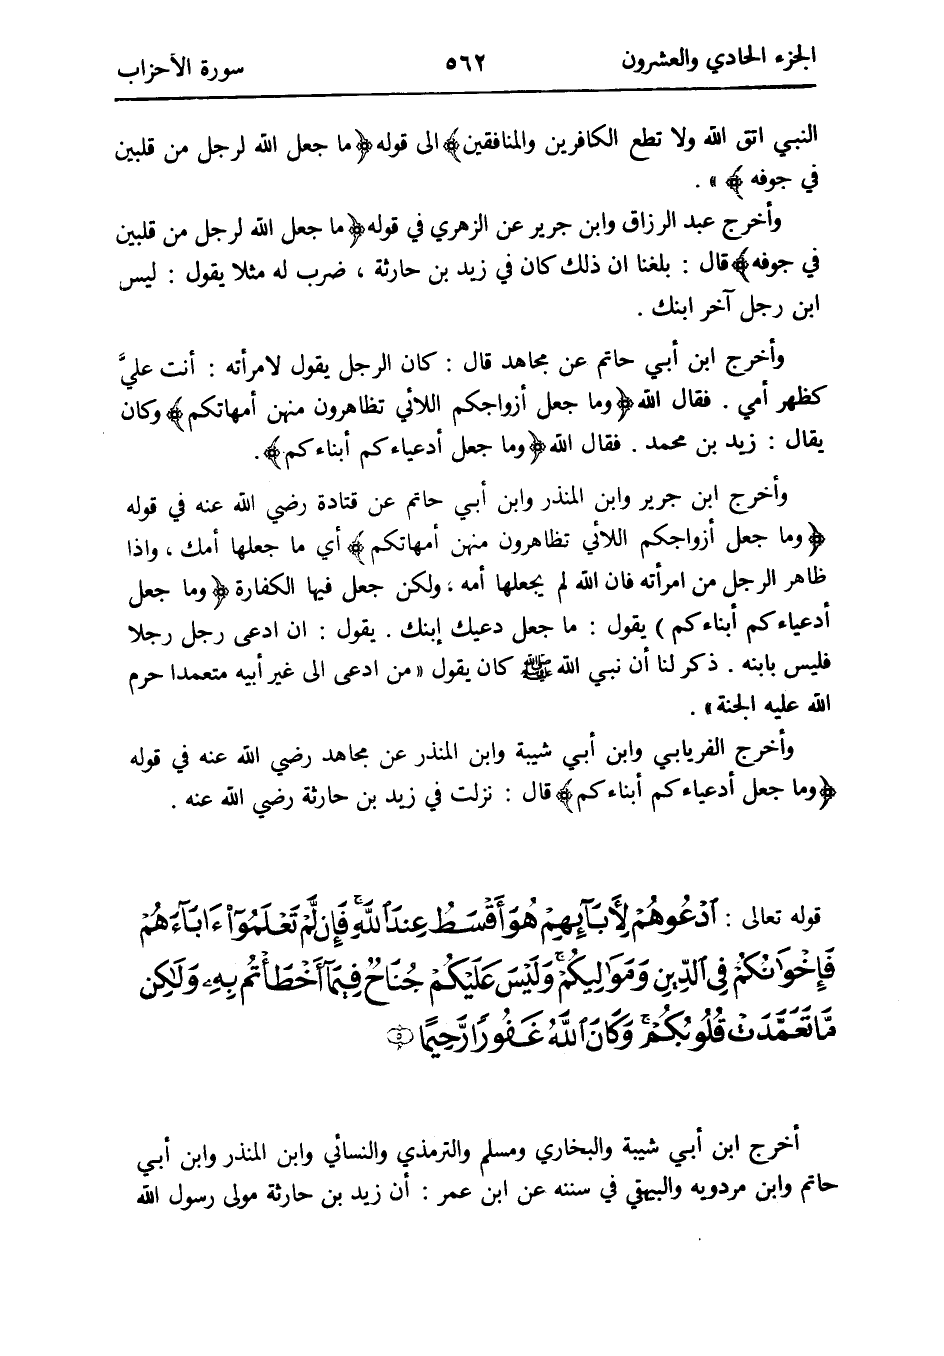 الجزء الحادي والعشرون ٥٦٢ سورة الأحزاب
النبي اتق الله ولا تطع الكافرين والمنافقين﴾ الى قوله ﴿ما جعل الله لرجل من قلبين
في جوفه﴾ » .
وأخرج عبد الرزاق وابن جرير عن الزهري في قوله ﴿ما جعل الله لرجل من قلبين
في جوفه﴾ قال : بلغنا ان ذلك كان في زيد بن حارثة ، ضرب له مثلا يقول : ليس
ابن رجل آخر ابنك .
وأخرج ابن أبي حاتم عن مجاهد قال : كان الرجل يقول لامرأته : أنت عليَّ
كظهر أمي . فقال الله ﴿وما جعل أزواجكم اللائي تظاهرون منهن أمهاتكم﴾ وكان
يقال : زيد بن محمد . فقال الله ﴿وما جعل أدعياءكم أبناءكم﴾ .
وأخرج ابن جرير وابن المنذر وابن أبي حاتم عن قتادة رضي الله عنه في قوله
﴿وما جعل أزواجكم اللائي تظاهرون منهن أمهاتكم﴾ أي ما جعلها أمك ، واذا
ظاهر الرجل من امرأته فان الله لم يجعلها أمه ، ولكن جعل فيها الكفارة ﴿وما جعل
أدعياءكم أبناءكم ) يقول : ما جعل دعيك إبنك . يقول : ان ادعى رجل رجلا
فليس بابنه . ذكر لنا أن نبي الله ﷺ كان يقول « من ادعى الى غير أبيه متعمدا حرم
الله عليه الجنة » .
وأخرج الفريابي وابن أبي شيبة وابن المنذر عن مجاهد رضي الله عنه في قوله
﴿وما جعل أدعياءكم أبناءكم﴾ قال : نزلت في زيد بن حارثة رضي الله عنه .
قوله تعالى : ٱدْعُوهُمْ لِأَبَآئِهِمْ هُوَ أَقْسَطُ عِندَ ٱللَّهِ ۚ فَإِن لَّمْ تَعْلَمُوٓا۟ ءَابَآءَهُمْ
فَإِخْوَٰنُكُمْ فِى ٱلدِّينِ وَمَوَٰلِيكُمْ ۚ وَلَيْسَ عَلَيْكُمْ جُنَاحٌ فِيمَآ أَخْطَأْتُم بِهِۦ وَلَٰكِن
مَّا تَعَمَّدَتْ قُلُوبُكُمْ ۚ وَكَانَ ٱللَّهُ غَفُورًا رَّحِيمًا ٥
أخرج ابن أبي شيبة والبخاري ومسلم والترمذي والنسائي وابن المنذر وابن أبي
حاتم وابن مردويه والبيهقي في سننه عن ابن عمر : أن زيد بن حارثة مولى رسول الله